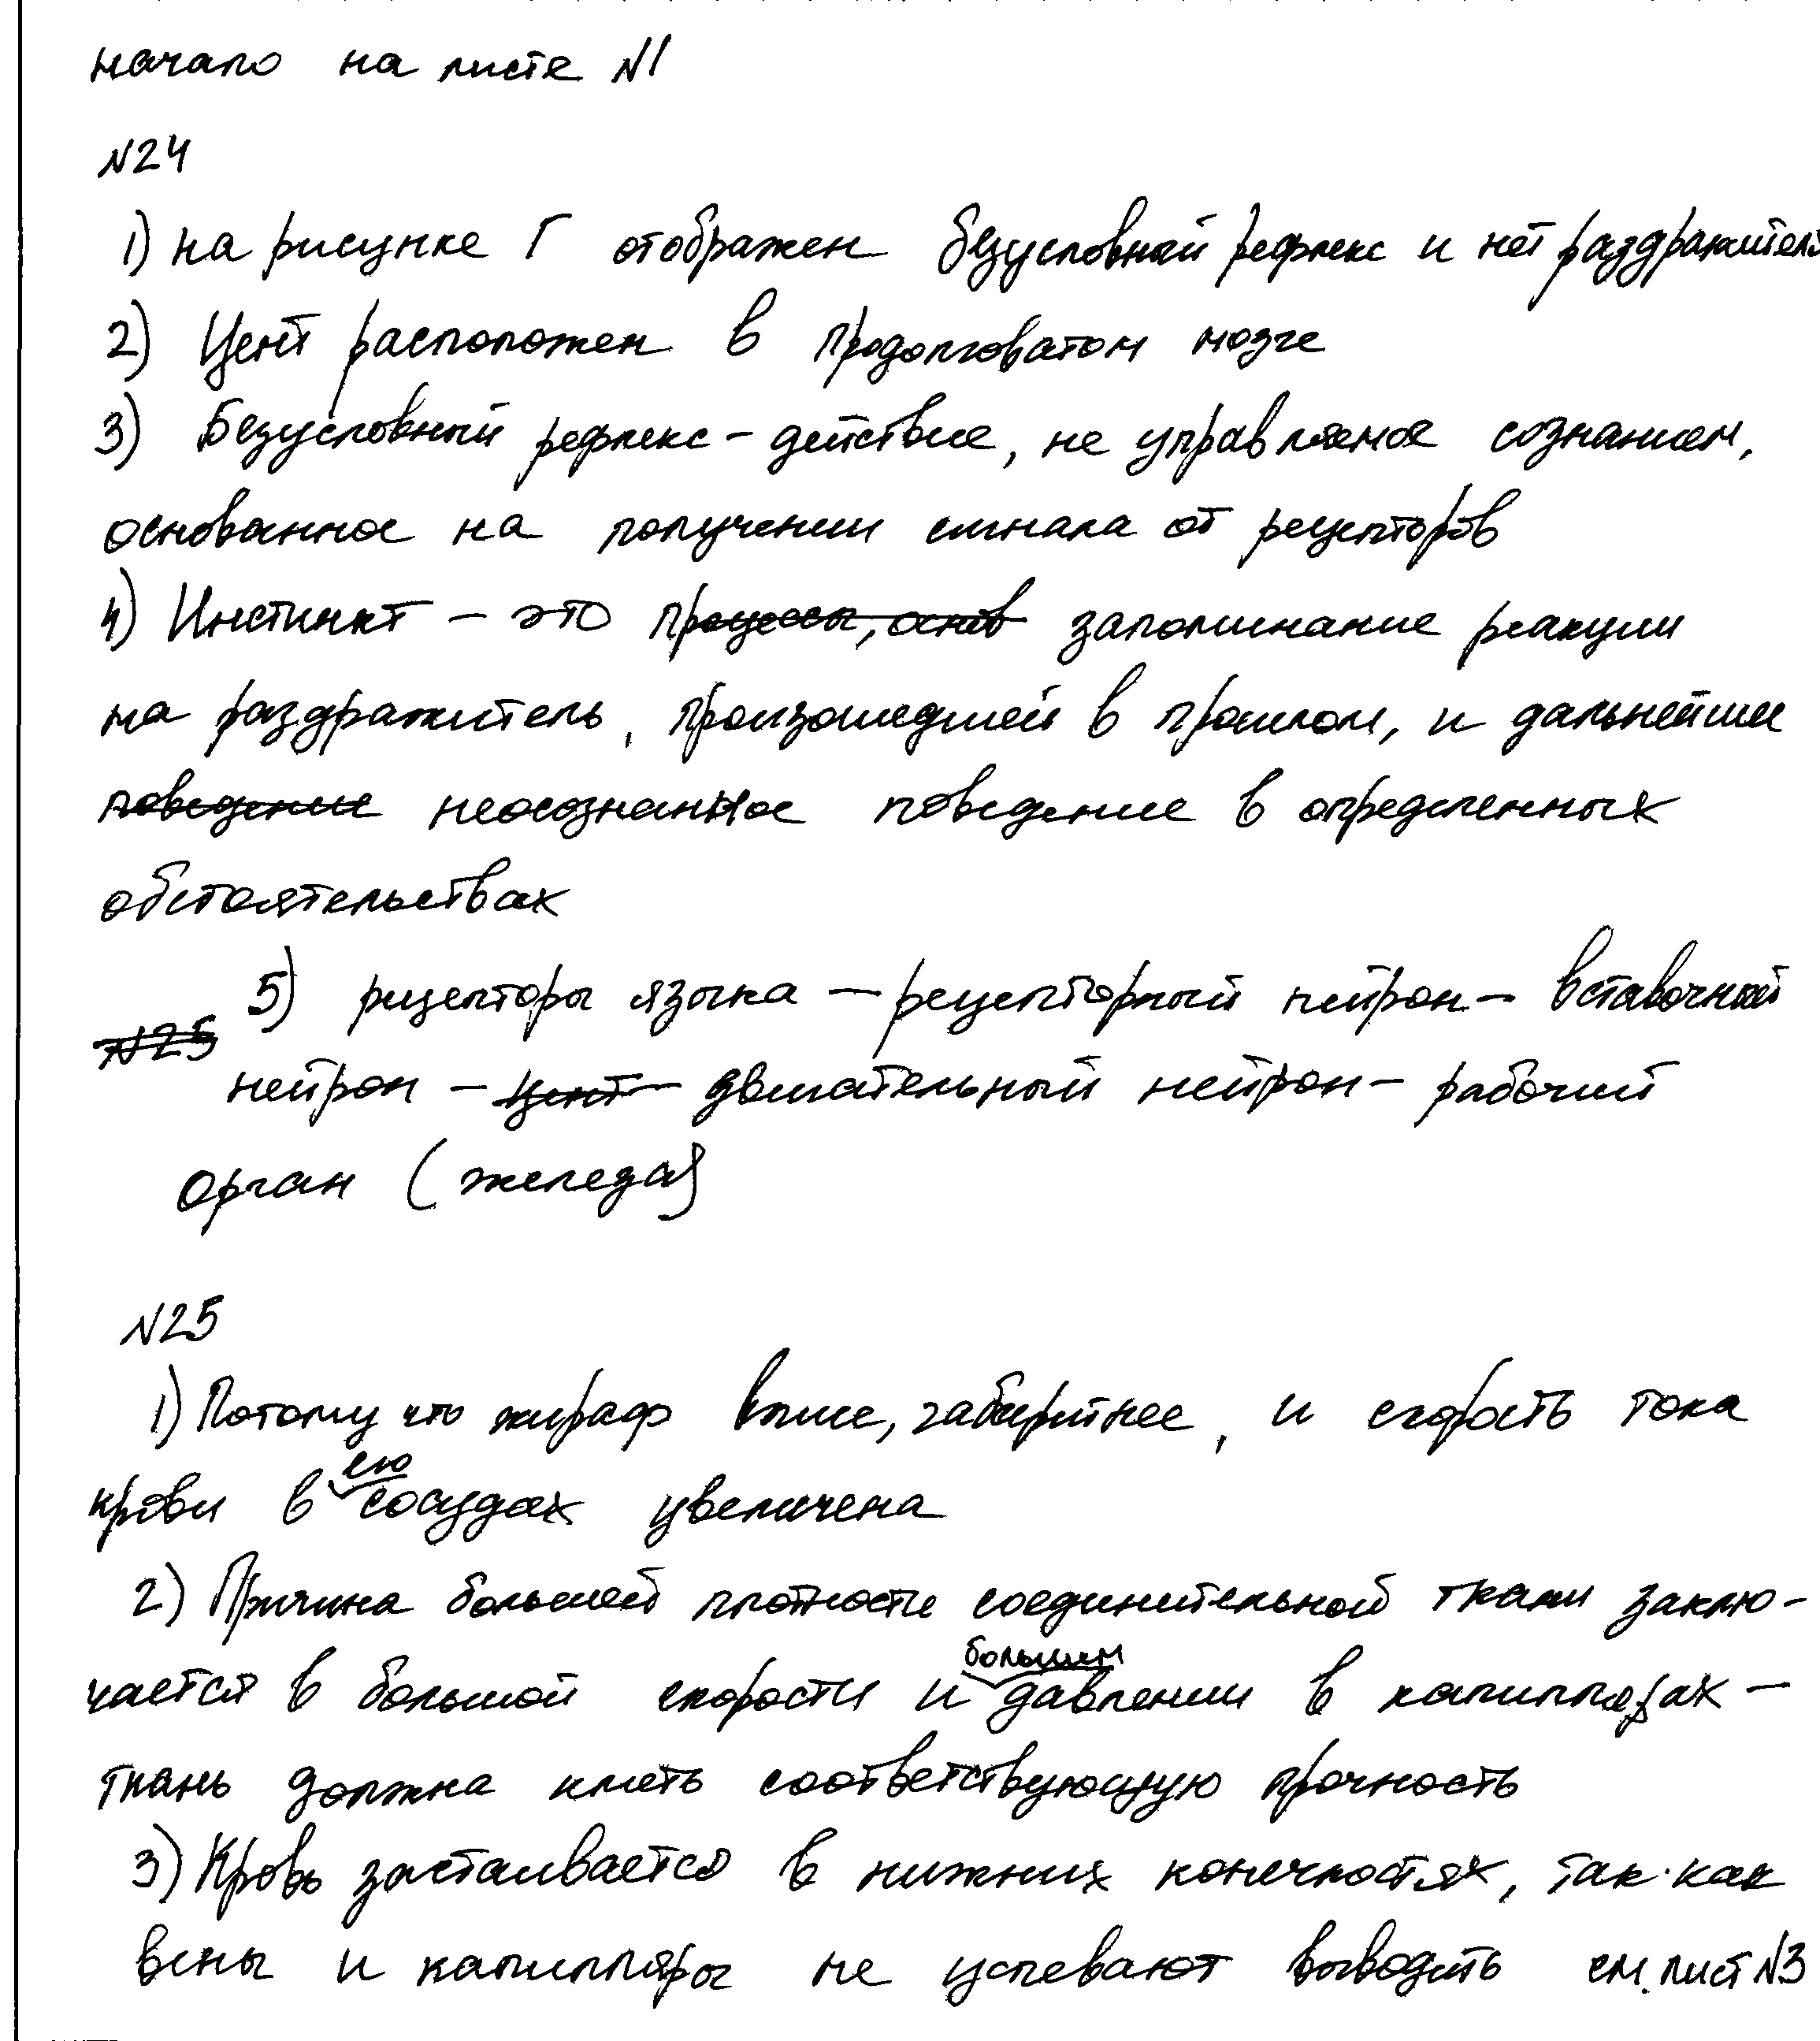 начало на листе №1
№24
1) на рисунке Г отображен безусловный рефлекс и нет раздражителя
2) Цент расположен в продолговатом мозге
3) Безусловный рефлекс - действие, не управляемое сознанием,
основанное на получении сигнала от рецепторов
4) Инстинкт - это процессы, основ запоминание реакции
на раздражитель, произошедшей в прошлом, и дальнейшее
поведение неосознанное поведение в определенных
обстоятельствах
5) рецепторы языка - рецепторный нейрон - вставочный
№25
нейрон - цент двигательный нейрон - рабочий
орган (железа)
№25
1) Потому что жираф выше, габаритнее, и скорость тока
крови в его сосудах увеличена
2) Причина большей плотности соединительной ткани заклю-
чается в большой скорости и большим давлении в капиллярах -
ткань должна иметь соответствующую прочность
3) Кровь застаивается в нижних конечностях, так как
вены и капилляры не успевают выводить см. лист №3